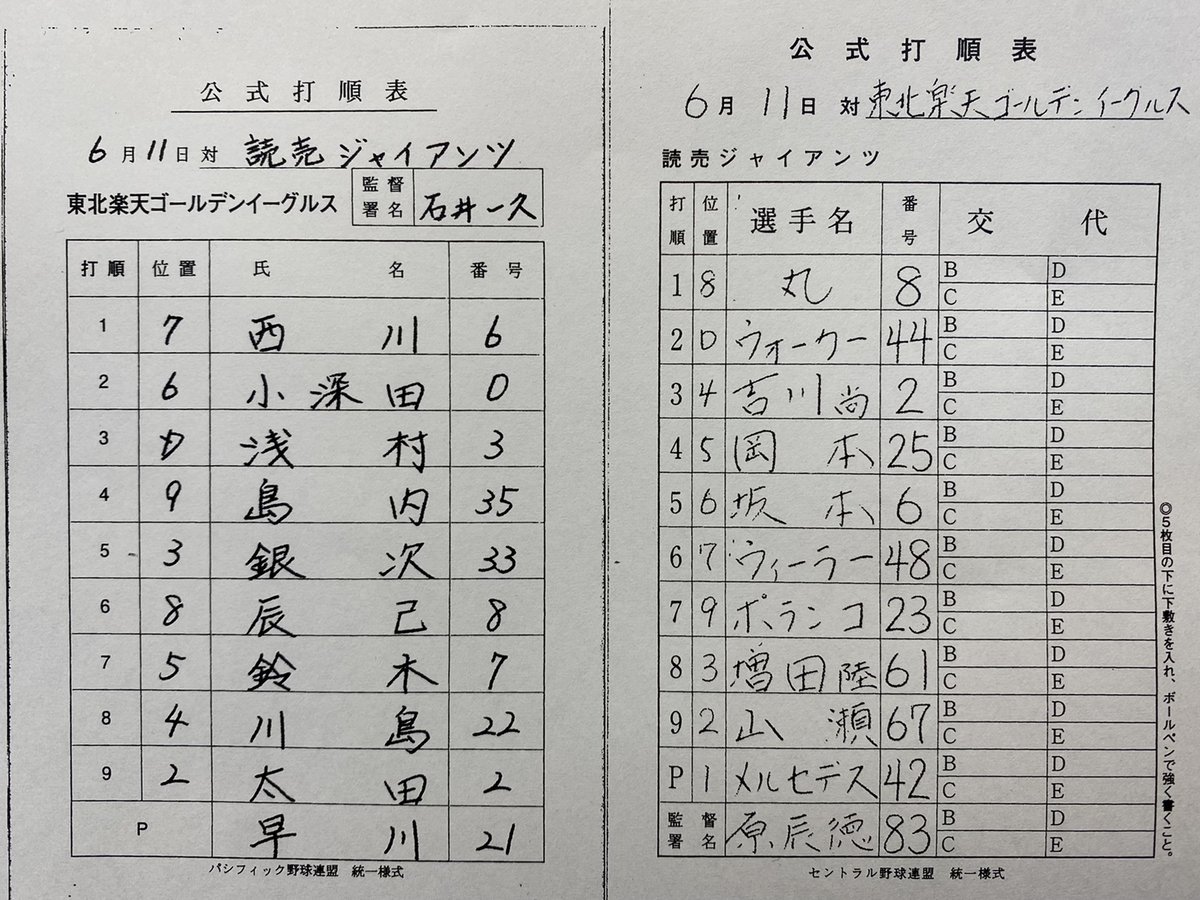 公式打順表
6月11日対 読売ジャイアンツ
東北楽天ゴールデンイーグルス 監督署名 石井一久
打順 位置 氏名 番号
1 7 西川 6
2 6 小深田 0
3 D 浅村 3
4 9 島内 35
5 3 銀次 33
6 8 辰己 8
7 5 鈴木 7
8 4 川島 22
9 2 太田 2
P 早川 21
パシフィック野球連盟 統一様式
公式打順表
6月11日対 東北楽天ゴールデンイーグルス
読売ジャイアンツ
打順 位置 選手名 番号 交代
1 8 丸 8 B D
C E
2 D ウォーカー 44 B D
C E
3 4 吉川尚 2 B D
C E
4 5 岡本 25 B D
C E
5 6 坂本 6 B D
C E
6 7 ウィーラー 48 B D
C E
7 9 ポランコ 23 B D
C E
8 3 増田陸 61 B D
C E
9 2 山瀬 67 B D
C E
P 1 メルセデス 42 B D
C E
監督署名 原辰徳 83 B D
C E
セントラル野球連盟 統一様式
◎5枚目の下に下敷きを入れ、ボールペンで強く書くこと。